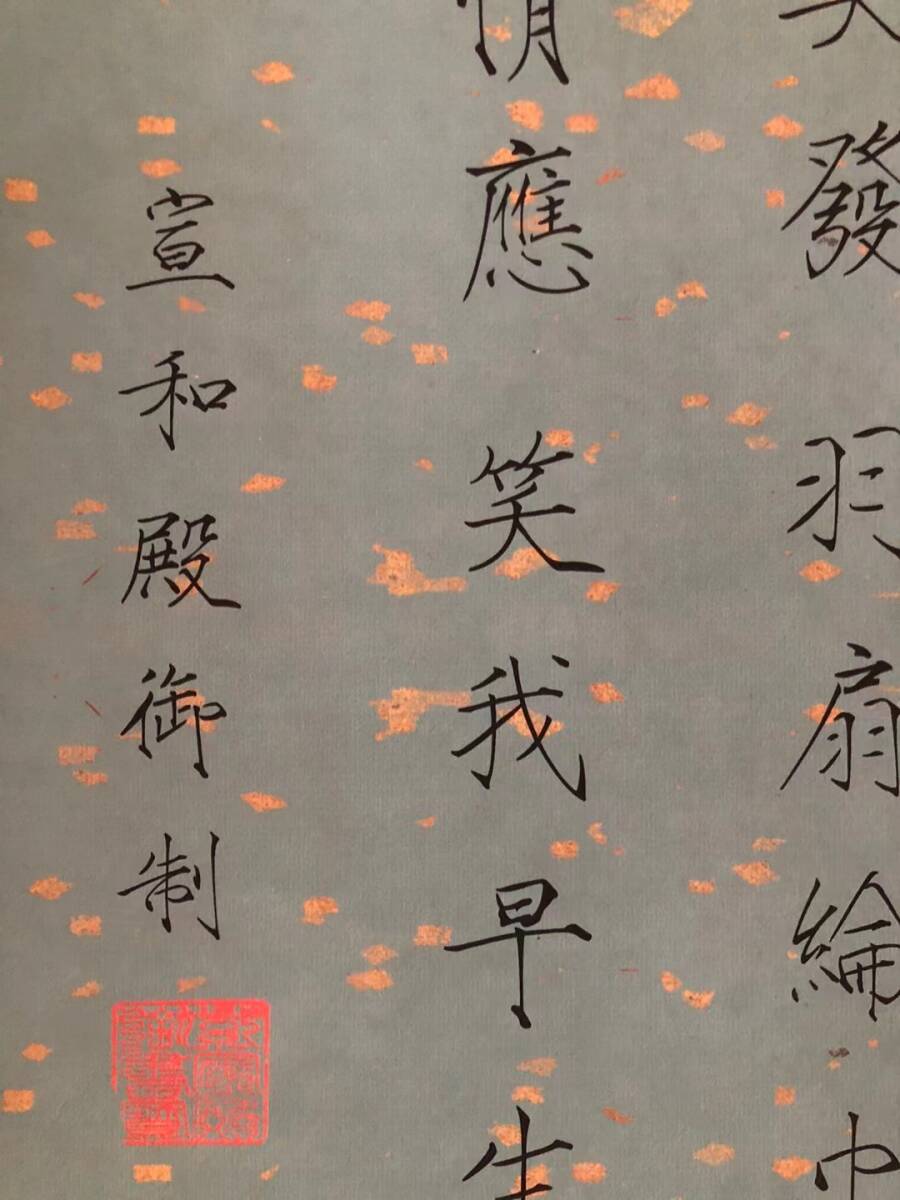 發羽扇綸巾
情應笑我早生
宣和殿御制